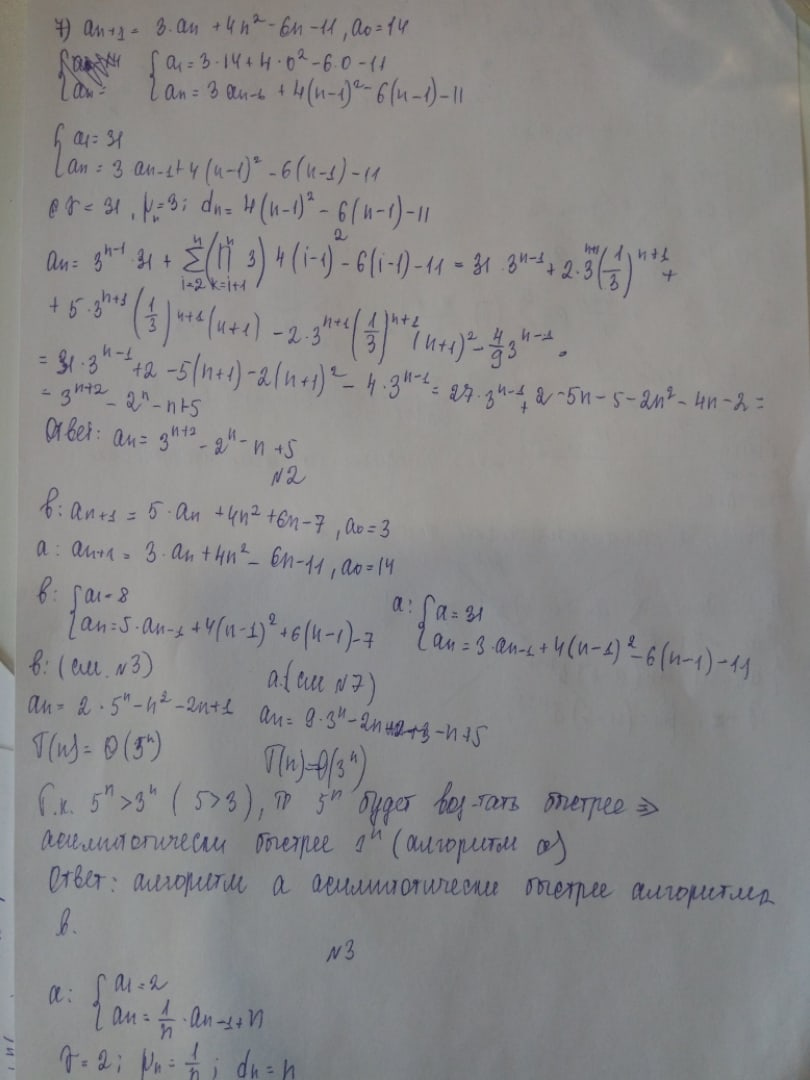 7) an+1 = 3·an + 4n² - 6n - 11, a0 = 14
{ an= { a1 = 3·14 + 4·0² - 6·0 - 11
an = 3 an-1 + 4(n-1)² - 6(n-1) - 11
{ a1 = 31
an = 3·an-1 + 4(n-1)² - 6(n-1) - 11
γ = 31, μn = 3; dn = 4(n-1)² - 6(n-1) - 11
an = 3^{n-1}·31 + ∑_{i=2}^{n} (∏_{k=i+1}^{n} 3) 4(i-1)² - 6(i-1) - 11 = 31·3^{n-1} + 2·3^{n+1}(1/3)^{n+1} +
+ 5·3^{n+1}(1/3)^{n+1}(n+1) - 2·3^{n+1}(1/3)^{n+1}(n+1)² - 4/9 3^{n-1}
= 31·3^{n-1} + 2 - 5(n+1) - 2(n+1)² - 4·3^{n-1} = 27·3^{n-1} + 2 - 5n - 5 - 2n² - 4n - 2 =
= 3^{n+2} - 2^n - n + 5
Ответ: an = 3^{n+2} - 2^n - n + 5
№2
в: an+1 = 5·an + 4n² + 6n - 7, a0 = 3
а: an+1 = 3·an + 4n² - 6n - 11, a0 = 14
в: { a1 = 8 а: { a = 31
an = 5·an-1 + 4(n-1)² + 6(n-1) - 7 an = 3·an-1 + 4(n-1)² - 6(n-1) - 11
в: (см. №3) а: (см №7)
an = 2·5^n - n² - 2n + 1 an = 9·3^n - 2n - n + 5
T(n) = Θ(5^n) T(n) = Θ(3^n)
Т.к. 5^n > 3^n (5>3), то 5^n будет воз-тать быстрее ⇒
асимптотически быстрее 3^n (алгоритм а)
Ответ: алгоритм а асимптотически быстрее алгоритма
в.
№3
а: { a1 = 2
an = 1/n · an-1 + n
γ = 2; μn = 1/n; dn = n